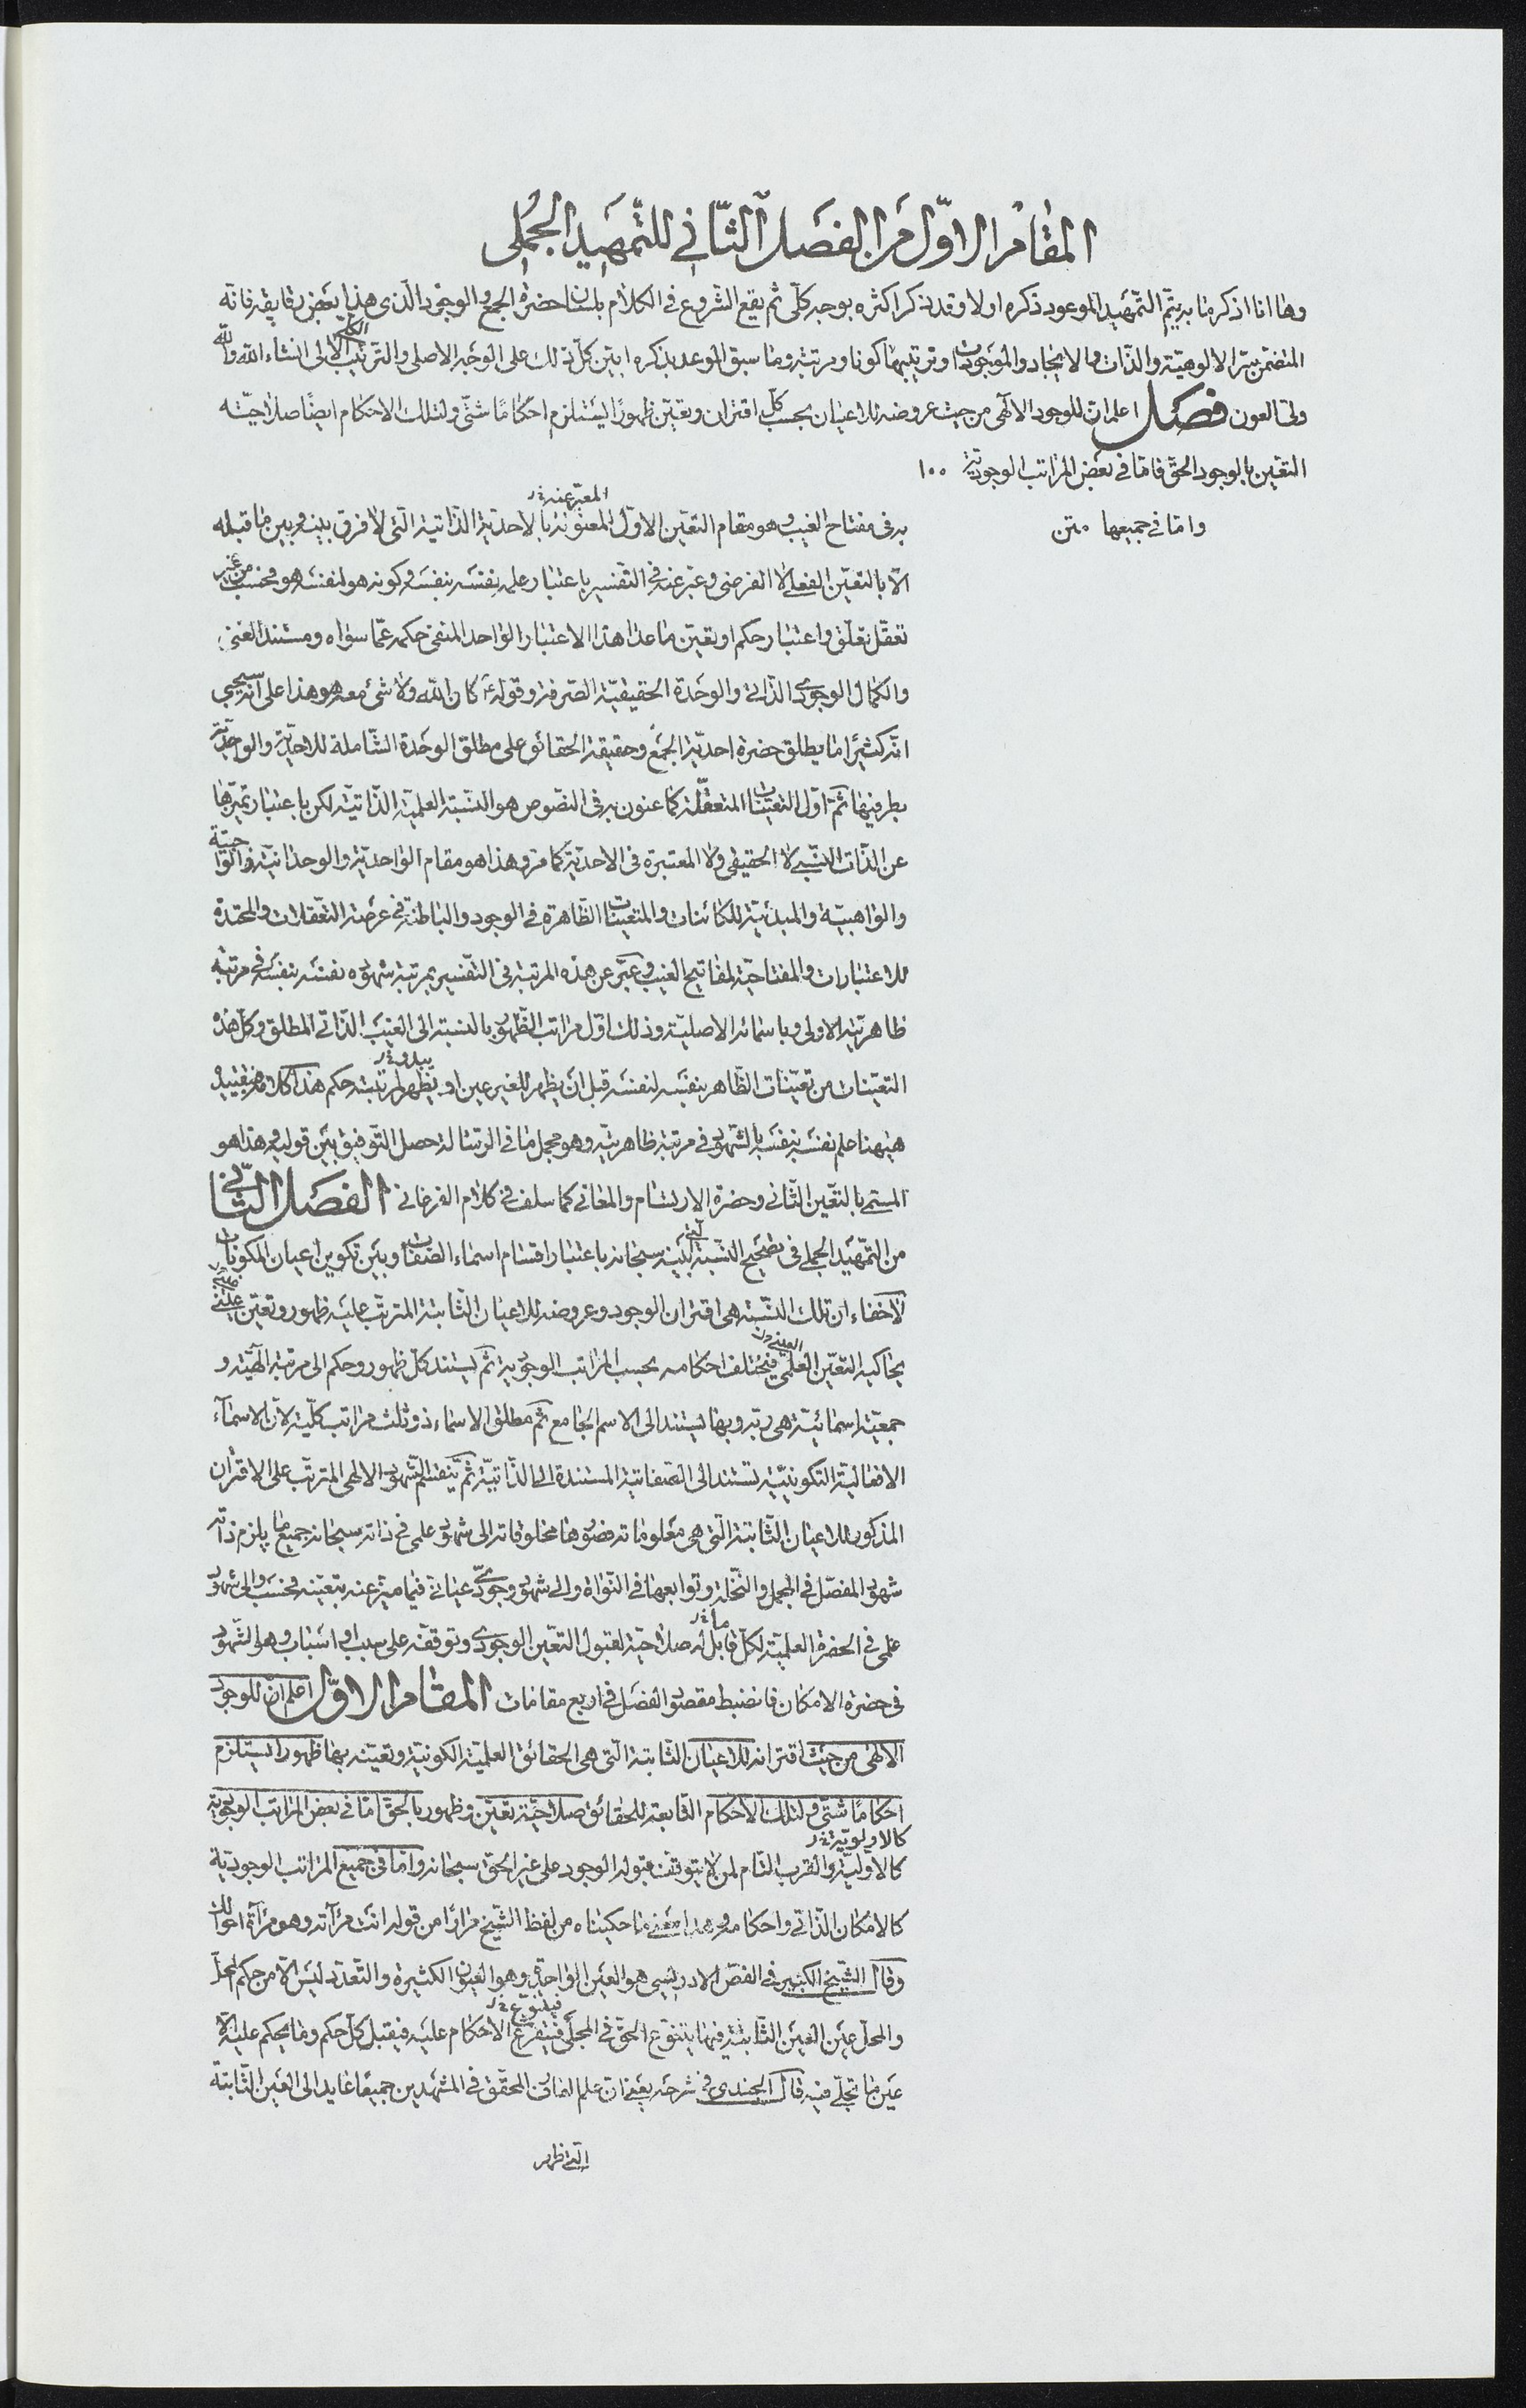 المقام الاوّل من الفصل الثّاني للتّمهيد الجُملي
وها انا اذكر ما به يتمّ التّمهيد الموعود ذكره اولا وقد يذكر اكثره بوجه كلّى ثم يقع الشّروع فى الكلام بلسان حضرة الجمع والوجود الّذى هذا بعض رقايقه فانّه
المتضمّن سرّ الالوهيّة والذّات والايجاد والموجودات وترتيبها كونا ومرتبة وما سبق الوعد بذكره ابيّن كلّ ذلك على الوجه الاصلى والترتيب الكلّى الالى انشاء الله والله
ولى العون فصل اعلم انّ للوجود الالهى من حيث عروضه للاعيان بحسب كلّ اقتران وتعيّن ظهورًا يستلزم احكامًا شتّى ولتلك الاحكام ايضًا صلاحيّة
التعيّن بالوجود الحقّ فامّا في بعض المراتب الوجوديّة ١٠٠
وامّا في جميعها متن
به فى مفتاح الغيب وهو مقام التعيّن الاوّل المعنونة المعبّر عنه بالاحديّة الذّاتية الّتى لا فرق بينه وبين ما قبله
الّا بالتعيّن الفعلى لا الفرضى وعبّر عنه فى التّفسير باعتبار علمه نفسه بنفسه وكونه هو لنفسه هو فحسب من غير
تعقّل تعلّق واعتبار حكم او تعيّن ما عدا هذا الاعتبار الواحد المنفى حكمه عمّا سواه ومستند الغنى
والكمال الوجودى الذّاتى والوحدة الحقيقيّة الصّرفة وقوله كان الله ولا شئ معه هو هذا على انّه سيجى
انّه كثيرًا ما يطلق حضرة احديّة الجمع وحقيقة الحقائق على مطلق الوحدة الشّاملة للاحديّة والواحديّة
بطرفيها ثمّ اوّل التعيّنات المتعقّلة كما عنون به فى النّصوص هو النّسبة العلميّة الذّاتيّة لكن باعتبار تميّزها
عن الذّات النّسبى لا الحقيقى ولا المعتبرة فى الاحديّة كما مرّ وهذا هو مقام الواحديّة والوحدانيّة والواجبيّة
والواهبيّة والمبدئيّة للكائنات والمتعيّنات الظّاهرة فى الوجود والباطنة فى عرصة التعقّلات والمحتدة
للاعتبارات والمفتاحيّة لمفاتيح الغيب وعبّر عن هذه المرتبة فى التّفسير بمرتبة شهوده نفسه بنفسه فى مرتبة
ظاهريّته الاولى وباسمائه الاصليّة وذلك اوّل مراتب الظّهور بالنسبة الى الغيب الذّاتى المطلق وكلّ هذه
التعيّنات من تعيّنات الظّاهر بنفسه لنفسه قبل ان يظهر للغير عين او يظهر يبدو لمرتبته حكم هذا كلامه فبتقييده
هيهنا علم نفسه بنفسه بالشّهود فى مرتبة ظاهريّته وهو مجمل ما فى الرّسالة حصل التّوفيق بين قوليه وهذا هو
المسمّى بالتعيّن الثّانى وحضرة الارتسام والمعانى كما سلف فى كلام الفرغانى الفصل الثّانى
من التّمهيد الجملى فى تصحيح النّسبة التى بينه سبحانه باعتبار اقسام اسماء الصّفات وبين تكوين اعيان المكوّنات
لاخفاء انّ تلك النّسبة هى اقتران الوجود وعروضه للاعيان الثّابتة المترتّب عليه ظهور وتعيّن علمىّ
يحاكيه التّعيّن العلمى العينى فيختلف احكامه بحسب المراتب الوجوديّة ثمّ يستند كلّ ظهور وحكم الى مرتبة الهيّة و
جمعيّة اسمائيّة هى ربّه وبها يستند الى الاسم الجامع ثمّ مطلق الاسماء ذو ثلث مراتب كلّيّة لانّ الاسماء
الافعاليّة التّكوينيّة تستند الى الصّفاتية المستندة الى الذّاتيّة ثمّ ينقسم الشّهود الالهى المترتّب على الاقتران
المذكور للاعيان الثّابتة الّتى هى معلوماته فضوها مخلوقاته الى شهود علمى فى ذاته سبحانه جميع ما يلزم ذاته
شهود المفصّل فى المجمل والنّخلة وتوابعها فى النّواة والى شهود وجودىّ عيانى فيما ميّز عنه بتعيّنه فحسب والى شهود
علمى فى الحضرة العلميّة لكلّ قابل ما له صلاحيّة لقبول التعيّن الوجودى وتوقفه على سبب او اسباب وهو الشّهود
فى حضرة الامكان فانضبط مقصود الفصل فى اربع مقامات المقام الاوّل اعلم انّ للوجود
الالهى من حيث اقترانه للاعيان الثّابتة الّتى هى الحقائق العلميّة الكونيّة وتعيّنه بها ظهورا يستلزم
احكامًا شتّى ولتلك الاحكام التّابعة للحقائق صلاحيّة تعيّن وظهور بالحق امّا فى بعض المراتب الوجوديّة
كالاوليّة كالاولويّة والقرب التّام لمن لا يتوقّف قبوله الوجود على غير الحق سبحانه وامّا فى جميع المراتب الوجوديّة
كالامكان الذّاتى واحكامه وهذا معنى ما حكيناه من لفظ الشّيخ مرارًا من قوله انت مرآته وهو مرآة احوالك
وقال الشّيخ الكبير فى الفصّ الادريسى هو العين الواحدة وهو العيون الكثيرة والتّعدّد ليس الّا من حكم المحلّ
والمحلّ عين العين الثّابتة فيها يتنوّع الحقّ فى المجلّى فيتفرّع فيتنوّع الاحكام عليه فيقبل كلّ حكم وما يحكم عليه الّا
عين ما تجلّى فيه قال الجندى فى شرحه يعنى انّ علم العارف المحقّق فى المشهدين جميعًا عايد الى العين الثّابتة
الّتى ظهر